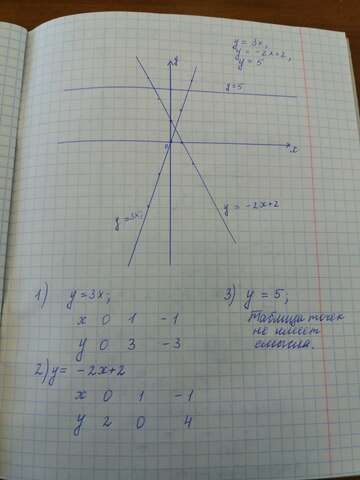 y = 3x;
y = -2x+2,
y = 5
y
y=5
0
x
y=3x;
y = -2x+2
1) y=3x;
x 0 1 -1
y 0 3 -3
2) y= -2x+2
x 0 1 -1
y 2 0 4
3) y = 5;
Таблица точек
не имеет
смысла.